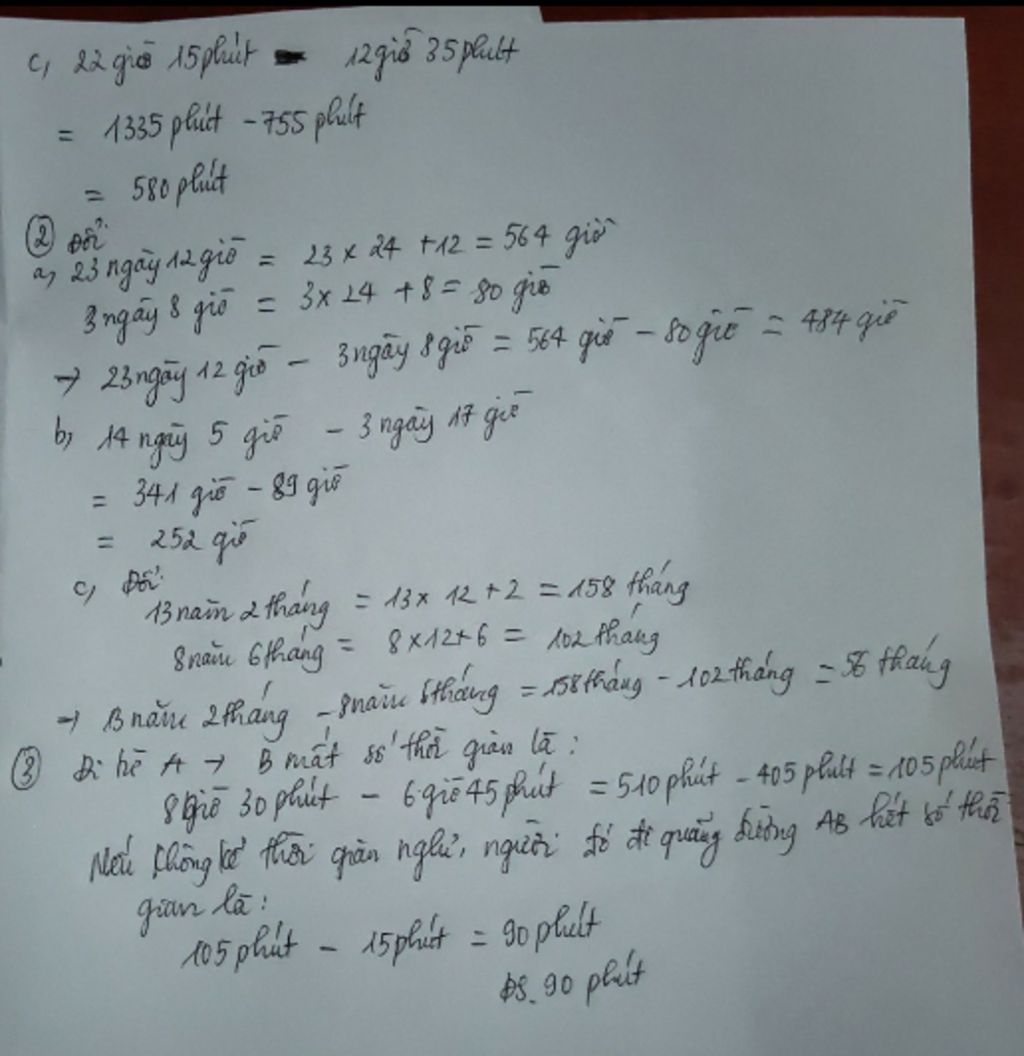 c, 22 giờ 15 phút - 12 giờ 35 phút
= 1335 phút - 755 phút
= 580 phút
② Đổi
a, 23 ngày 12 giờ = 23 x 24 + 12 = 564 giờ
3 ngày 8 giờ = 3 x 24 + 8 = 80 giờ
→ 23 ngày 12 giờ - 3 ngày 8 giờ = 564 giờ - 80 giờ = 484 giờ
b, 14 ngày 5 giờ - 3 ngày 17 giờ
= 341 giờ - 89 giờ
= 252 giờ
c, Đổi
13 năm 2 tháng = 13 x 12 + 2 = 158 tháng
8 năm 6 tháng = 8 x 12 + 6 = 102 tháng
→ 13 năm 2 tháng - 8 năm 6 tháng = 158 tháng - 102 tháng = 56 tháng
③ Đi từ A → B mất số thời gian là:
8 giờ 30 phút - 6 giờ 45 phút = 510 phút - 405 phút = 105 phút
Nếu không kể thời gian nghỉ, người đó đi quãng đường AB hết số thời
gian là:
105 phút - 15 phút = 90 phút
ĐS. 90 phút